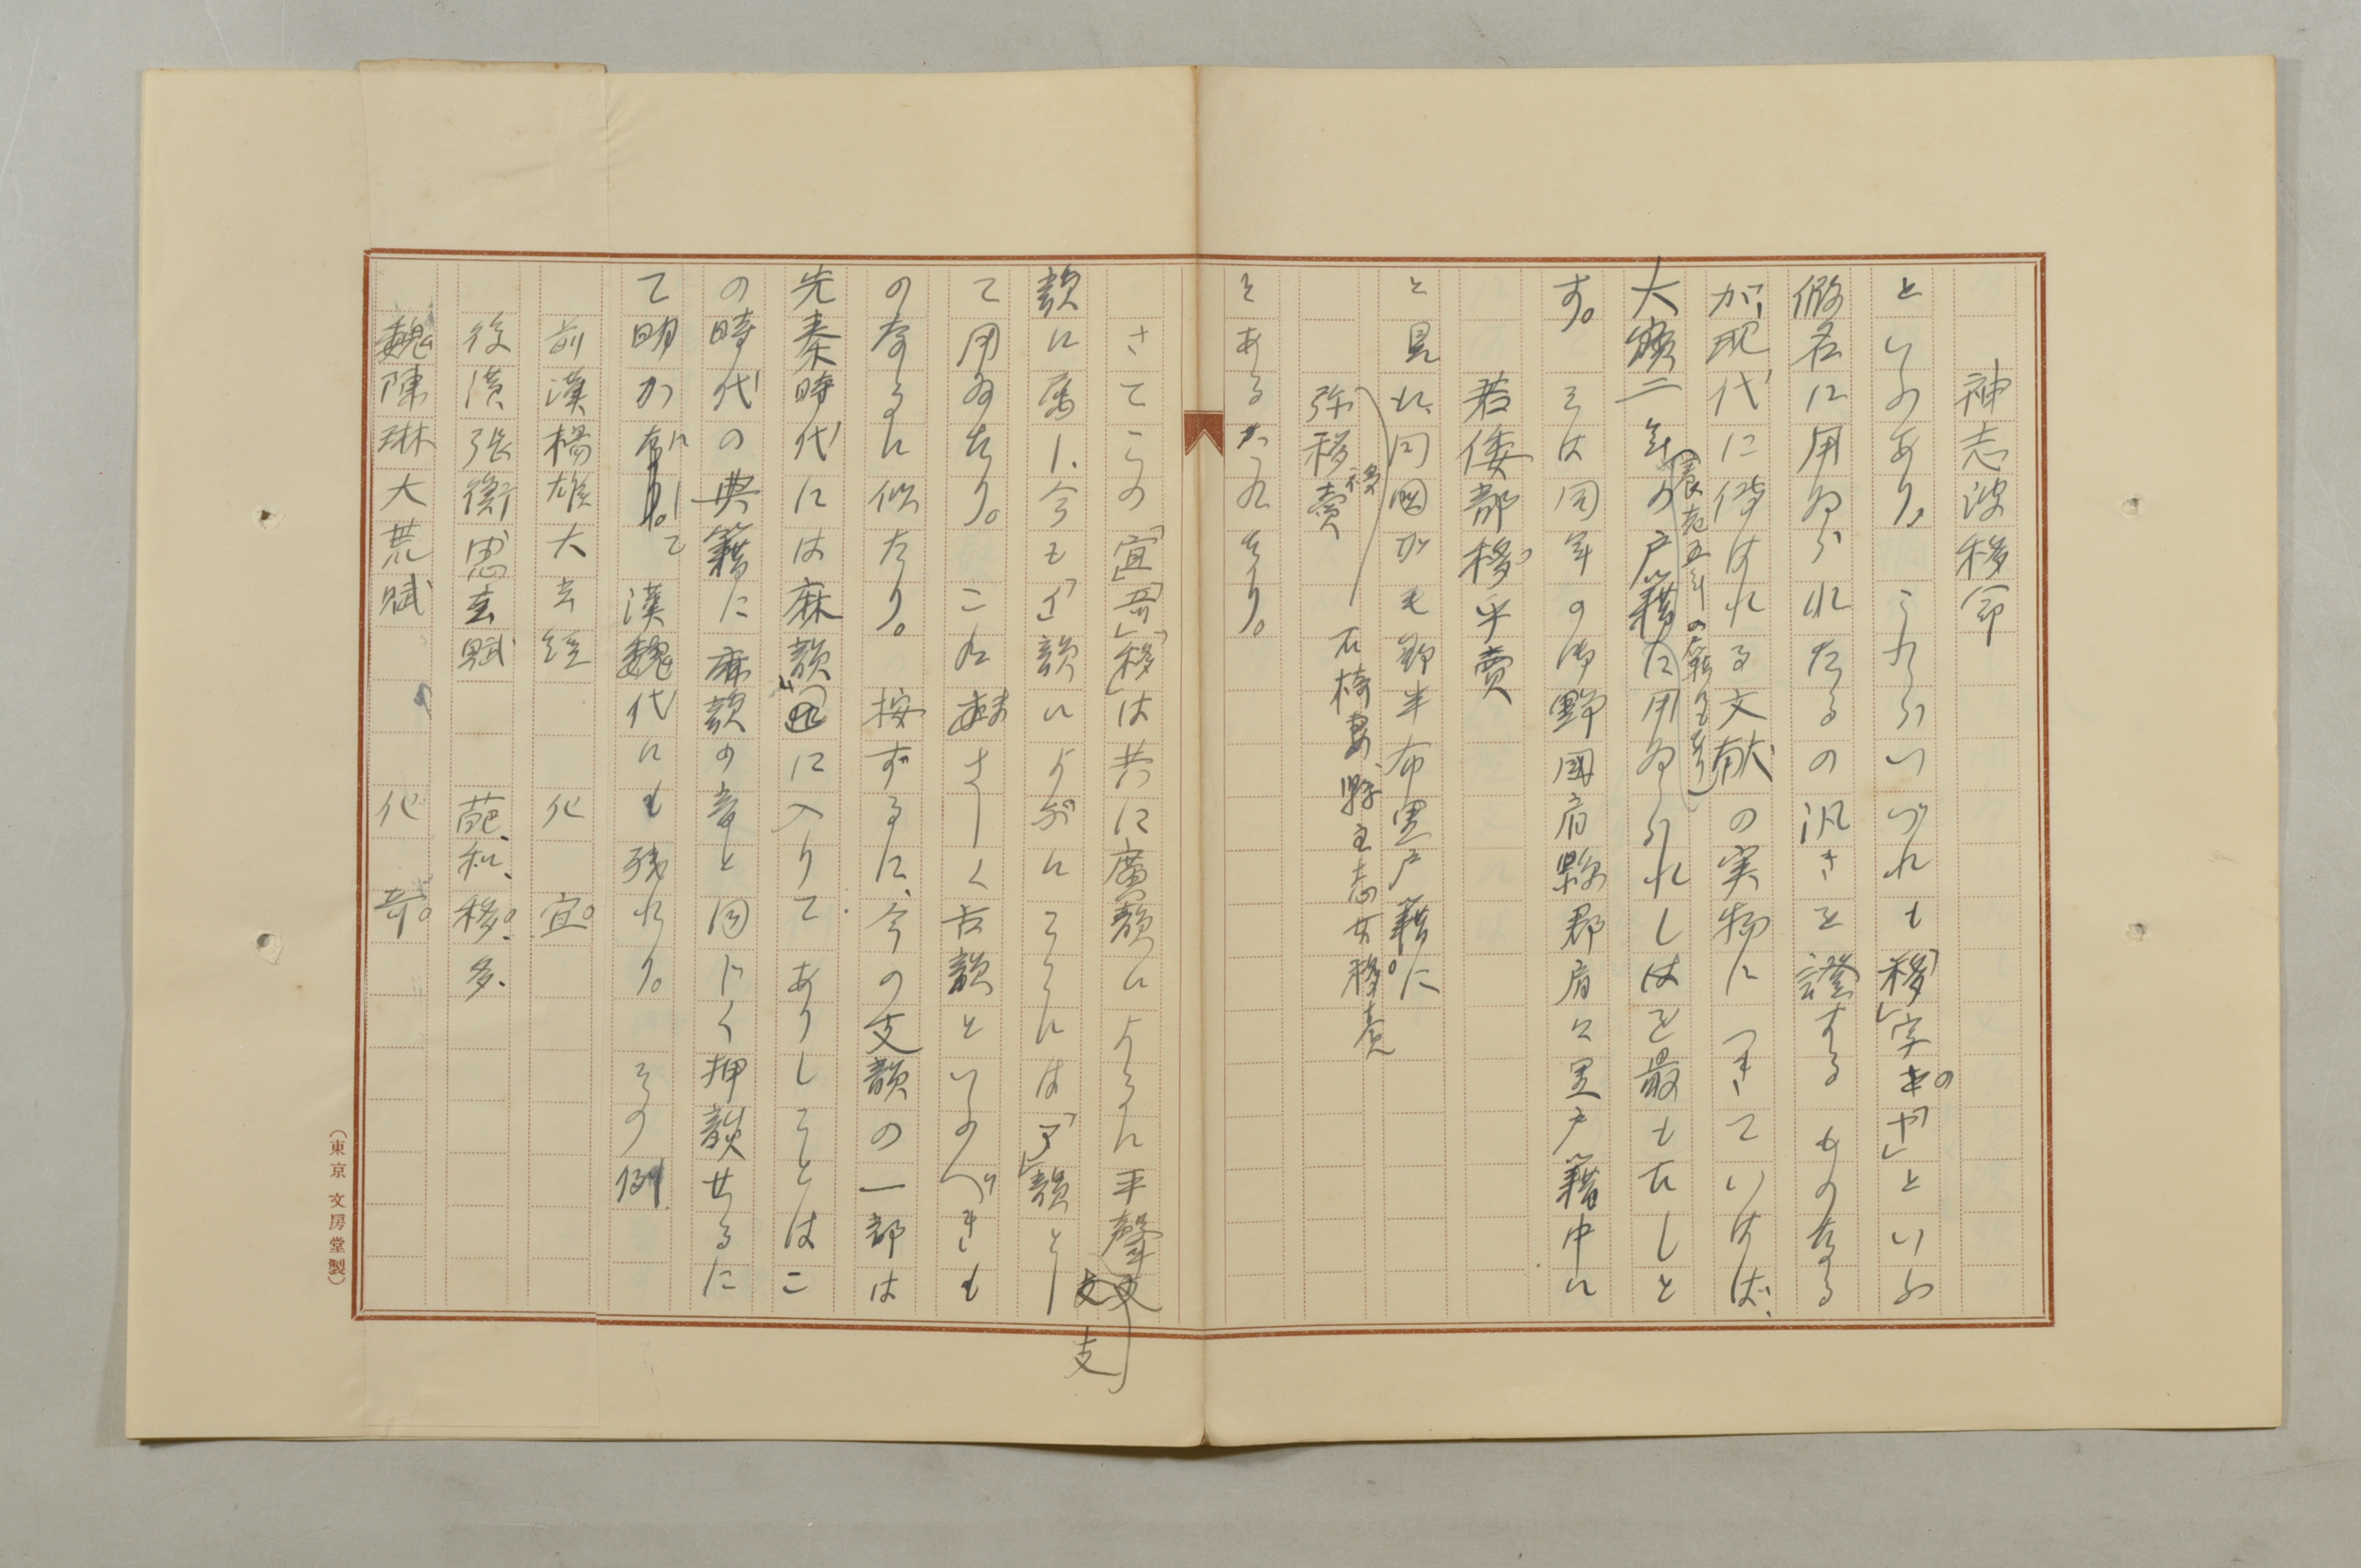 神志波移命
といふあり。これらいづれも「移」字の「ヤ」といふ
假名に用ゐられたるの汎きを證するものなる
が、現代に傳はれる文献の実物につきていはば、
大寳二年の戸籍に用ゐられしはを最も古しと
(養老五年の籍にもあり)
す。そは同年の御野國肩縣郡肩々里戸籍中に
若倭部移乎賣
と見え、同國加毛郡半布里戸籍に
弥移賣 石椅妻縣主志女移賣
移
とあるなどえり。
さてこの「宜」「奇」「移」は共に廣韻によるに平聲支
支
韻に属し、今も「イ」韻によぶにここには「ア」韻とし
て用ゐたり。これ極古しく古韻といふべきも
のなるに似たり。按ずるに、今の支韻の一部は
先秦時代には麻韻に入りてありしことはこ
の時代の典籍に麻韻の音と同じく押韻せるに
て明かにして漢魏代にも残れり。その例
前漢楊雄大玄經 化 宜。
後漢張衡思玄賦 葩、和、移。多、
魏陳琳大荒賦 化 奇。
(東京 文房堂製)